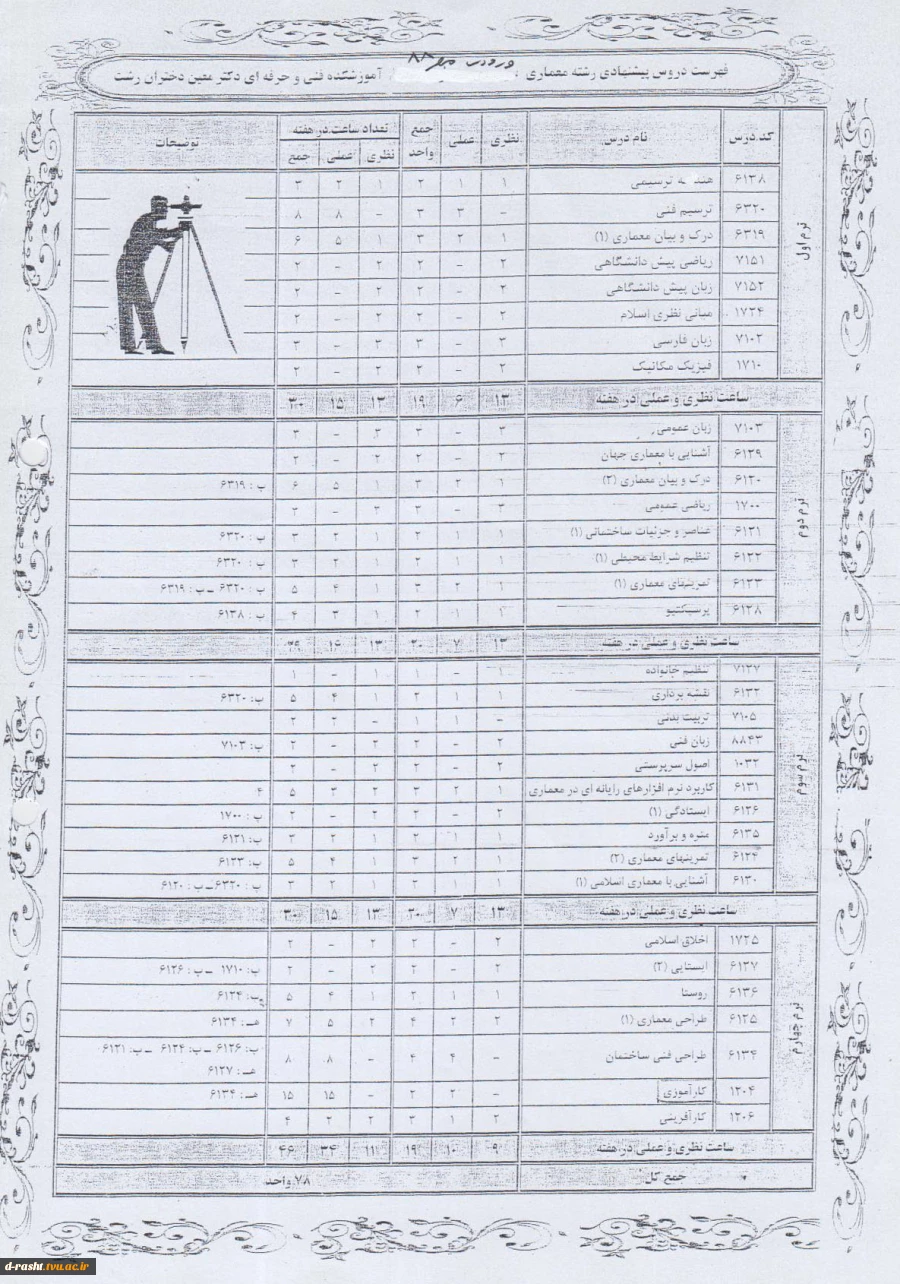 ورودی مهر ۸۸
فهرست دروس پیشنهادی رشته معماری آموزشکده فنی و حرفه ای دکتر معین دختران رشت
کد درس نام درس نظری عملی جمع واحد تعداد ساعت در هفته نظری عملی جمع توضیحات
ترم اول
۶۱۳۸ هندسه ترسیمی ۱ ۱ ۲ ۱ ۲ ۳
۶۳۲۰ ترسیم فنی - ۳ ۳ - ۸ ۸
۶۳۱۹ درک و بیان معماری (۱) ۱ ۲ ۳ ۱ ۵ ۶
۷۱۵۱ ریاضی پیش دانشگاهی ۲ - ۲ ۲ - ۲
۷۱۵۲ زبان پیش دانشگاهی ۲ - ۲ ۲ - ۲
۱۷۲۴ مبانی نظری اسلام ۲ - ۲ ۲ - ۲
۷۱۰۲ زبان فارسی ۳ - ۳ ۳ - ۳
۱۷۱۰ فیزیک مکانیک ۲ - ۲ ۲ - ۲
ساعت نظری و عملی در هفته ۱۳ ۶ ۱۹ ۱۳ ۱۵ ۳۰
ترم دوم
۷۱۰۳ زبان عمومی ۳ - ۳ ۳ - ۳
۶۱۲۹ آشنایی با معماری جهان ۲ - ۲ ۲ - ۲
۶۱۲۰ درک و بیان معماری (۲) ۱ ۲ ۳ ۱ ۵ ۶ پ : ۶۳۱۹
۱۷۰۰ ریاضی عمومی ۳ - ۳ ۳ - ۳
۶۱۲۱ عناصر و جزئیات ساختمانی (۱) ۱ ۱ ۲ ۱ ۲ ۳ پ : ۶۳۲۰
۶۱۲۲ تنظیم شرایط محیطی (۱) ۱ ۱ ۲ ۱ ۲ ۳ پ : ۶۳۲۰
۶۱۲۳ تمرینهای معماری (۱) ۱ ۲ ۳ ۱ ۴ ۵ پ : ۶۳۲۰ - پ : ۶۳۱۹
۶۱۲۸ پرسپکتیو ۱ ۱ ۲ ۱ ۳ ۴ پ : ۶۱۳۸
ساعت نظری و عملی در هفته ۱۳ ۷ ۲۰ ۱۳ ۱۶ ۲۹
ترم سوم
۷۱۲۷ تنظیم خانواده ۱ - ۱ ۱ - ۱
۶۱۳۲ نقشه برداری ۱ ۱ ۲ ۱ ۴ ۵ پ: ۶۳۲۰
۷۱۰۵ تربیت بدنی - ۱ ۱ - ۲ ۲
۸۸۴۳ زبان فنی ۲ - ۲ ۲ - ۲ پ: ۷۱۰۳
۱۰۳۲ اصول سرپرستی ۲ - ۲ ۲ - ۲
۶۱۳۱ کاربرد نرم افزارهای رایانه ای در معماری ۱ ۲ ۳ ۲ ۳ ۵ ۴
۶۱۲۶ ایستادگی (۱) ۲ - ۲ ۲ - ۲ پ : ۱۷۰۰
۶۱۳۵ متره و برآورد ۱ ۱ ۲ ۱ ۲ ۳ پ: ۶۱۲۱
۶۱۲۴ تمرینهای معماری (۲) ۱ ۲ ۳ ۱ ۴ ۵ پ: ۶۱۲۳
۶۱۳۰ آشنایی با معماری اسلامی (۱) ۱ ۱ ۲ ۱ ۲ ۳ پ : ۶۳۲۰ - پ : ۶۱۲۰
ساعت نظری و عملی در هفته ۱۳ ۷ ۲۰ ۱۳ ۱۵ ۳۰
ترم چهارم
۱۷۲۵ اخلاق اسلامی ۲ - ۲ ۲ - ۲
۶۱۲۷ ایستایی (۲) ۲ - ۲ ۲ - ۲ پ: ۱۷۱۰ - پ : ۶۱۲۶
۶۱۳۶ روستا ۱ ۱ ۲ ۱ ۴ ۵ پ: ۶۱۲۴
۶۱۲۵ طراحی معماری (۱) ۲ ۲ ۴ ۲ ۵ ۷ هـ : ۶۱۳۴
۶۱۳۴ طراحی فنی ساختمان - ۴ ۴ - ۸ ۸ پ: ۶۱۲۶ - پ: ۶۱۲۴ - پ: ۶۱۲۱
هـ : ۶۱۲۷
۱۲۰۴ کارآموزی - ۲ ۲ - ۱۵ ۱۵ هـ : ۶۱۳۴
۱۲۰۶ کارآفرینی ۲ ۱ ۳ ۲ ۲ ۴
ساعت نظری و عملی در هفته ۹ ۱۰ ۱۹ ۱۱ ۳۴ ۴۶
جمع کل ۷۸ واحد
d-rasht.tvu.ac.ir